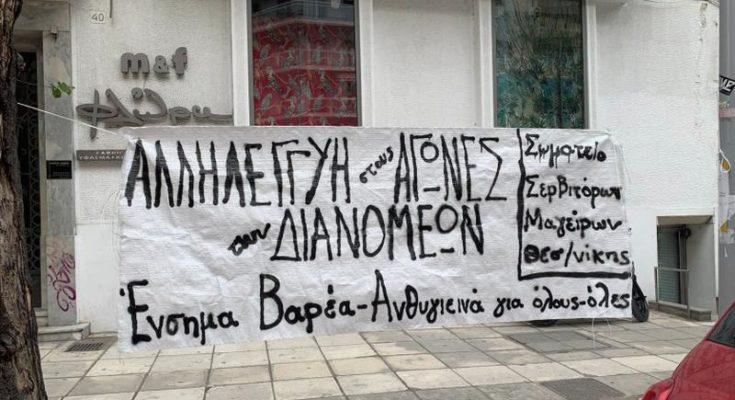 40
m&f
φλώρα
ΑΛΛΗΛΕΓΓΥΗ στους ΑΓΩΝΕΣ
των ΔΙΑΝΟΜΕΩΝ
Σωματείο
Σερβιτόρων
Μαγείρων
Θεσ/νίκης
Ένσημα Βαρέα-Ανθυγιεινά για όλους-όλες